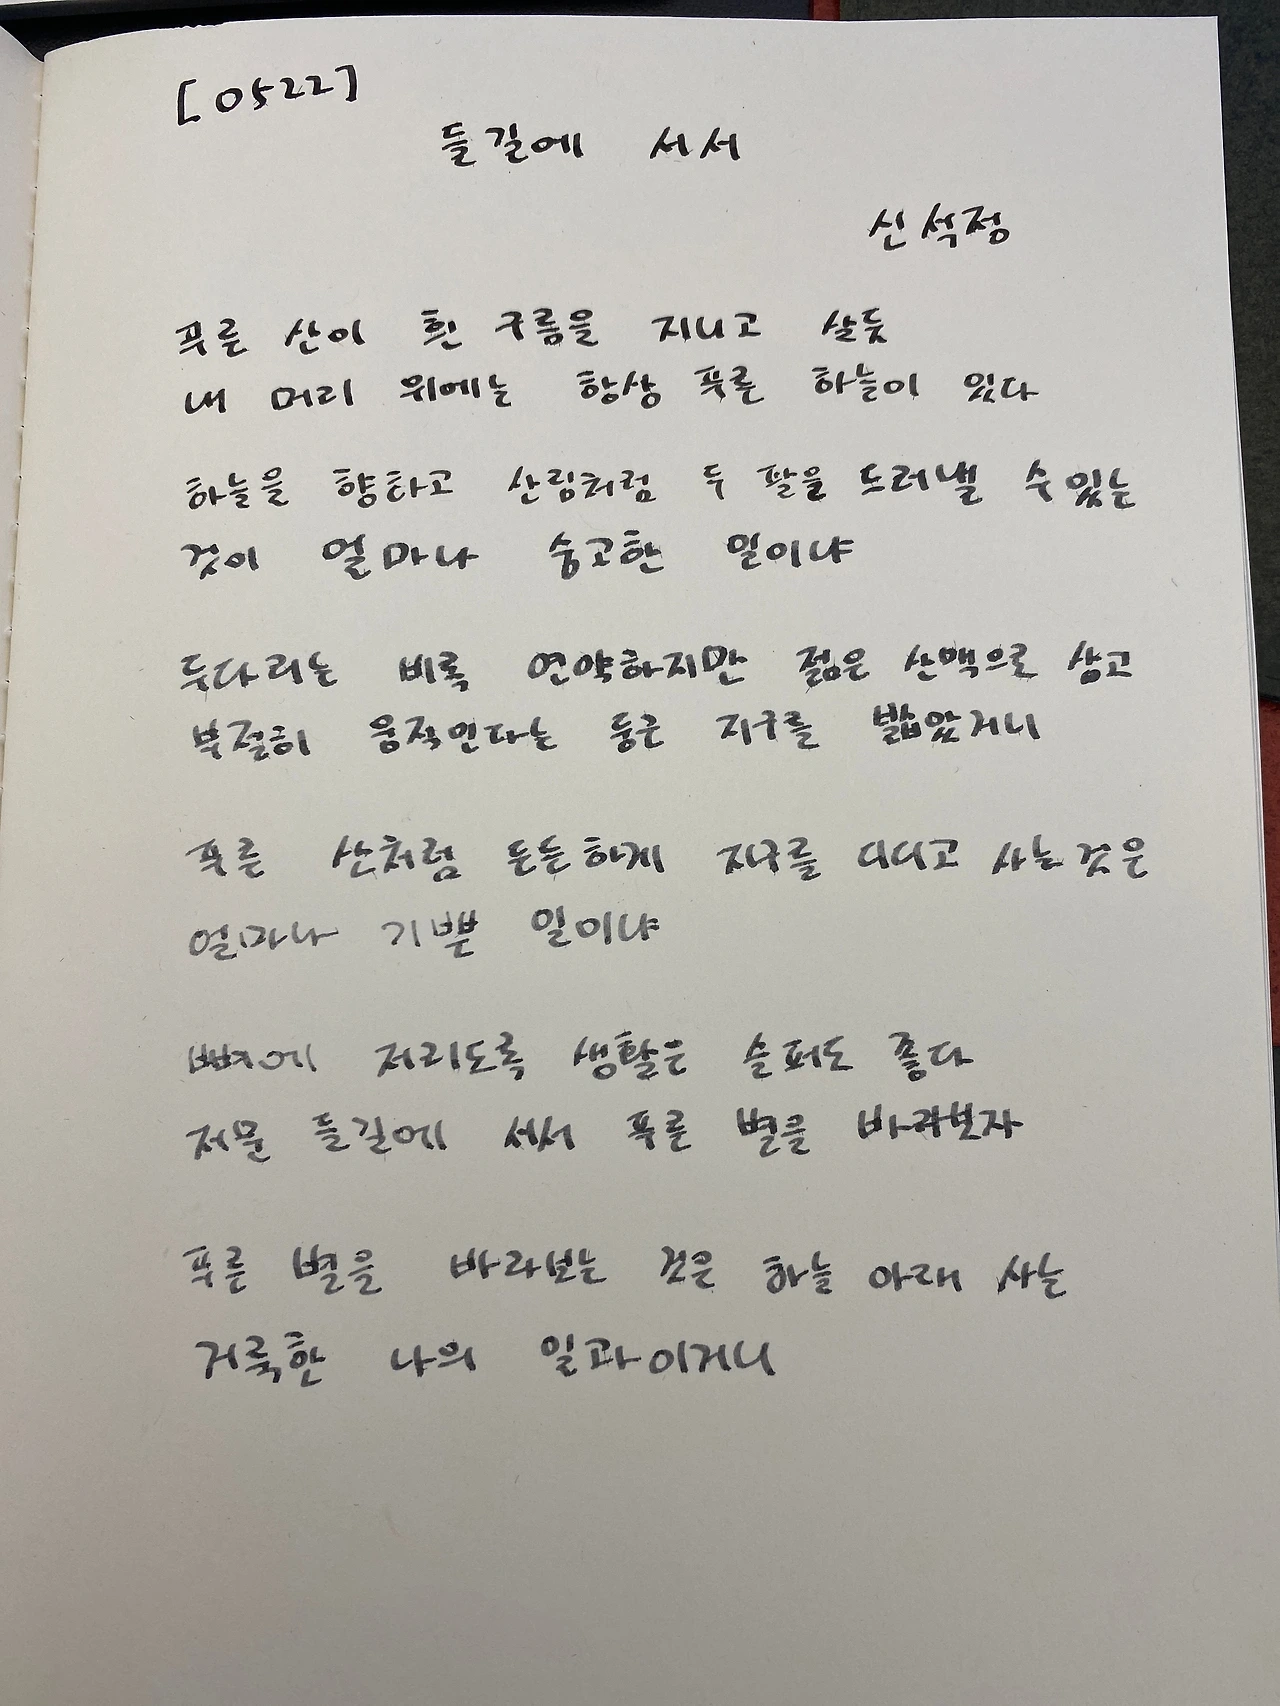 [0522]
들길에 서서
신석정
푸른 산이 흰 구름을 지니고 살듯
내 머리 위에는 항상 푸른 하늘이 있다
하늘을 향하고 산림처럼 두 팔을 드러낼 수 있는
것이 얼마나 숭고한 일이냐
두 다리는 비록 연약하지만 젊은 산맥으로 삼고
부절히 움직인다는 둥근 지구를 밟았거니
푸른 산처럼 든든하게 지구를 디디고 사는 것은
얼마나 기쁜 일이냐
뼈에 저리도록 생활은 슬퍼도 좋다
저문 들길에 서서 푸른 별을 바라보자
푸른 별을 바라보는 것은 하늘 아래 사는
거룩한 나의 일과이거니